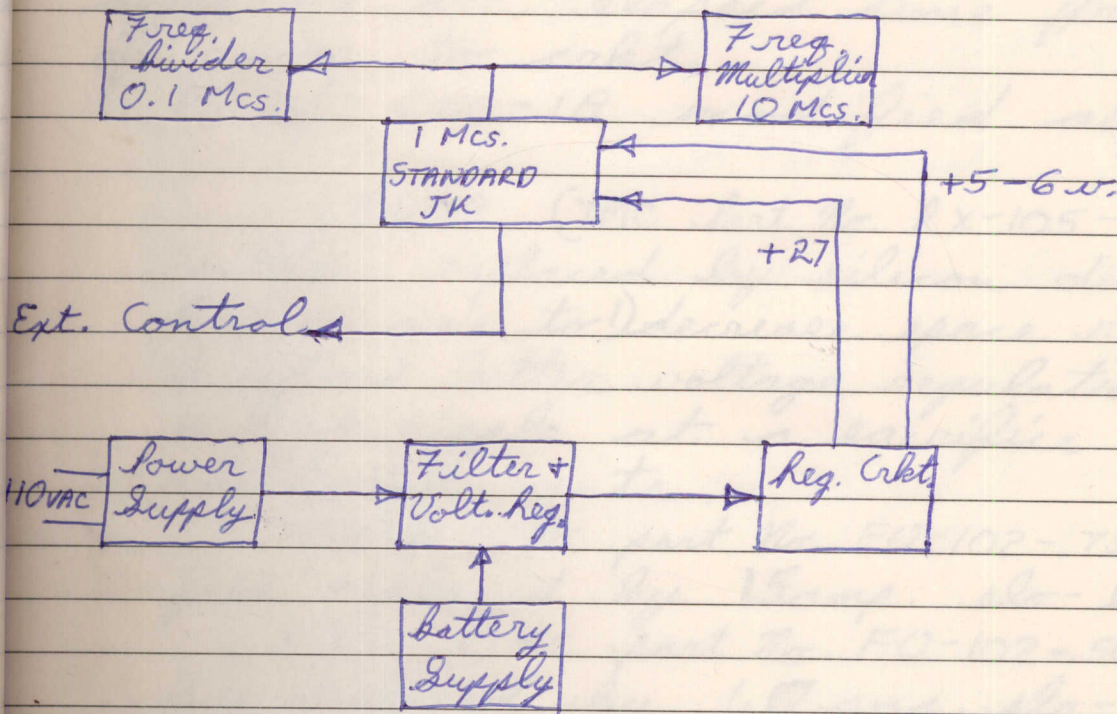 Freq.
Divider
0.1 Mcs.
Freq.
Multiplier
10 Mcs.
1 Mcs.
STANDARD
JK
+5-6 v.
+27
Ext. Control
110 VAC
Power
Supply
Filter +
Volt. Reg.
Reg. Crkt.
Battery
Supply